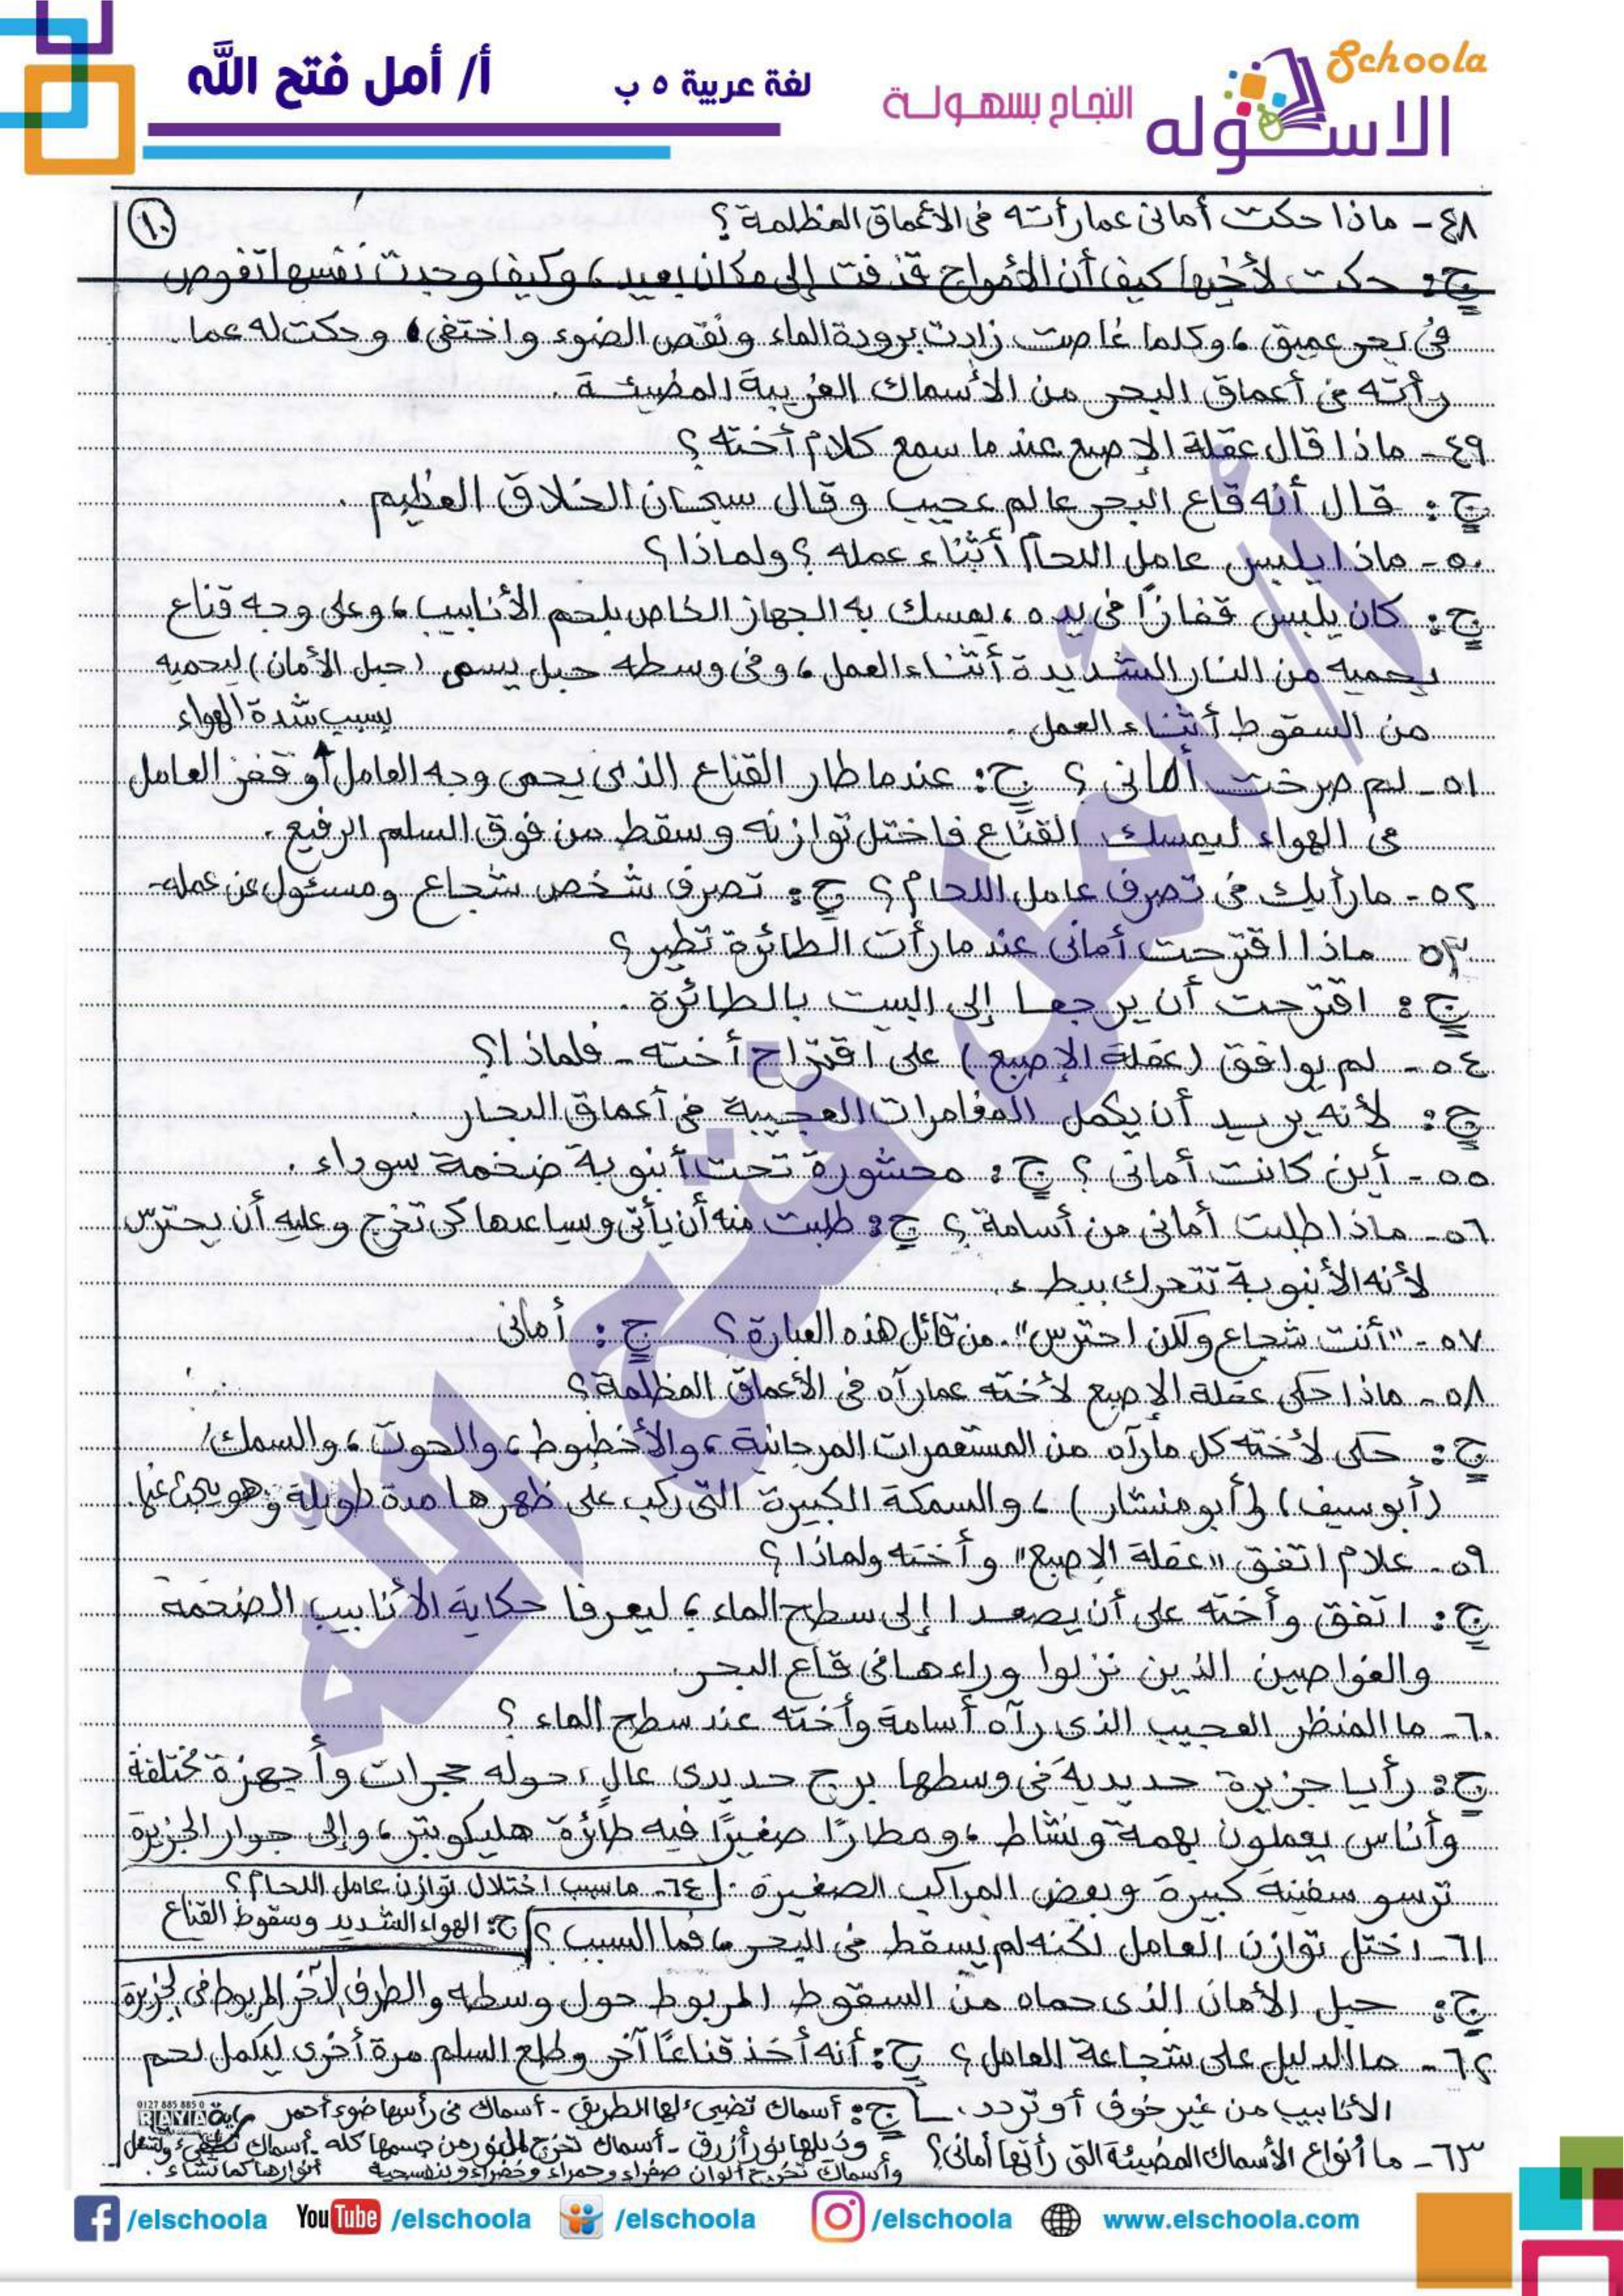 Schoola
الاسكوله
النجاح بسهولة
لغة عربية ٥ ب
أ/ أمل فتح الله
١٠
٤٨- ماذا حكت أمانى عما رأته فى الأعماق المظلمة؟
ج: حكت لأخيها كيف أن الأمواج قذفت إلى مكان بعيد، وكيف وجدت نفسها تغوص
فى بحر عميق، وكلما غاصت زادت برودة الماء ونقص الضوء واختفى، وحكت له عما
رأته فى أعماق البحر من الأسماك الغريبة المضيئة.
٤٩- ماذا قال عقلة الإصبع عندما سمع كلام أخته؟
ج: قال أنه قاع البحر عالم عجيب وقال سبحان الخلاق العظيم.
٥٠- ماذا يلبس عامل اللحام أثناء عمله؟ ولماذا؟
ج: كان يلبس قفازًا فى يده، يمسك به الجهاز الخاص بلحم الأنابيب، وعلى وجه قناع
يحميه من النار الشديدة أثناء العمل، وفى وسطه حبل يسمى (حبل الأمان) ليحميه
من السقوط أثناء العمل.
بسبب شدة الهواء
٥١- لم صرخت أمانى؟ ج: عندما طار القناع الذى يحمى وجه العامل و قفز العامل
فى الهواء ليمسك القناع فاختل توازنه وسقط من فوق السلم الرفيع.
٥٢- ما رأيك فى تصرف عامل اللحام؟ ج: تصرف شخص شجاع ومسئول عن عمله-
٥٣- ماذا اقترحت أمانى عندما رأت الطائرة تطير؟
ج: اقترحت أن يرجعا إلى البيت بالطائرة.
٥٤- لم يوافق (عقلة الإصبع) على اقتراح أخته- فلماذا؟
ج: لأنه يريد أن يكمل المغامرات العجيبة فى أعماق البحار.
٥٥- أين كانت أمانى؟ ج: محشورة تحت أنبوبة ضخمة سوداء.
٥٦- ماذا طلبت أمانى من أسامة؟ ج: طلبت منه أن يأتى ويساعدها كى تخرج وعليه أن يحترس
لأنه الأنبوبة تتحرك ببطء.
٥٧- "أنت شجاع ولكن احترس". من قائل هذه العبارة؟ ج: أمانى
٥٨- ماذا حكى عقلة الإصبع لأخته عما رآه فى الأعماق المظلمة؟
ج: حكى لأخته كل ما رآه من المستعمرات المرجانية، والأخطبوط، والحوت، والسمك
(أبو سيف) و(أبو منشار)، والسمكة الكبيرة التى ركب على ظهرها مدة طويلة وهو يبحث عنها.
٥٩- علام اتفق "عقلة الإصبع" وأخته ولماذا؟
ج: اتفق وأخته على أن يصعدا إلى سطح الماء؛ ليعرفا حكاية الأنابيب الضخمة
والغواصين الذين نزلوا وراءها فى قاع البحر.
٦٠- ما المنظر العجيب الذى رآه أسامة وأخته عند سطح الماء؟
ج: رأيا جزيرة حديدية فى وسطها برج حديدى عالٍ، حوله حجرات وأجهزة مختلفة
وأناس يعملون بهمة ونشاط، ومطارًا صغيرًا فيه طائرة هليكوبتر، وإلى جوار الجزيرة
ترسو سفينة كبيرة وبعض المراكب الصغيرة.
٦٤- ما سبب اختلال توازن عامل اللحام؟
ج: الهواء الشديد وسقوط القناع
٦١- اختل توازن العامل لكنه لم يسقط فى البحر، فما السبب؟
ج: حبل الأمان الذى حماه من السقوط المربوط حول وسطه والطرف الآخر المربوط فى الجزيرة
٦٢- ما الدليل على شجاعة العامل؟ ج: أنه أخذ قناعًا آخر وطلع السلم مرة أخرى ليكمل لحم
الأنابيب من غير خوف أو تردد.
٦٣- ما أنواع الأسماك المضيئة التى رأتها أمانى؟
ج: أسماك تضىء لها الطريق- أسماك فى رأسها ضوء أحمر
وذيلها نور أزرق- أسماك تخرج النور من جسمها كله- أسماك تطفىء وتشعل أنوارها كما تشاء.
وأسماك تخرج ألوان صفراء وحمراء وخضراء وبنفسجية
0127 885 885 0
RAYA
أ/ أمل فتح الله
/elschoola
YouTube /elschoola
/elschoola
/elschoola
www.elschoola.com